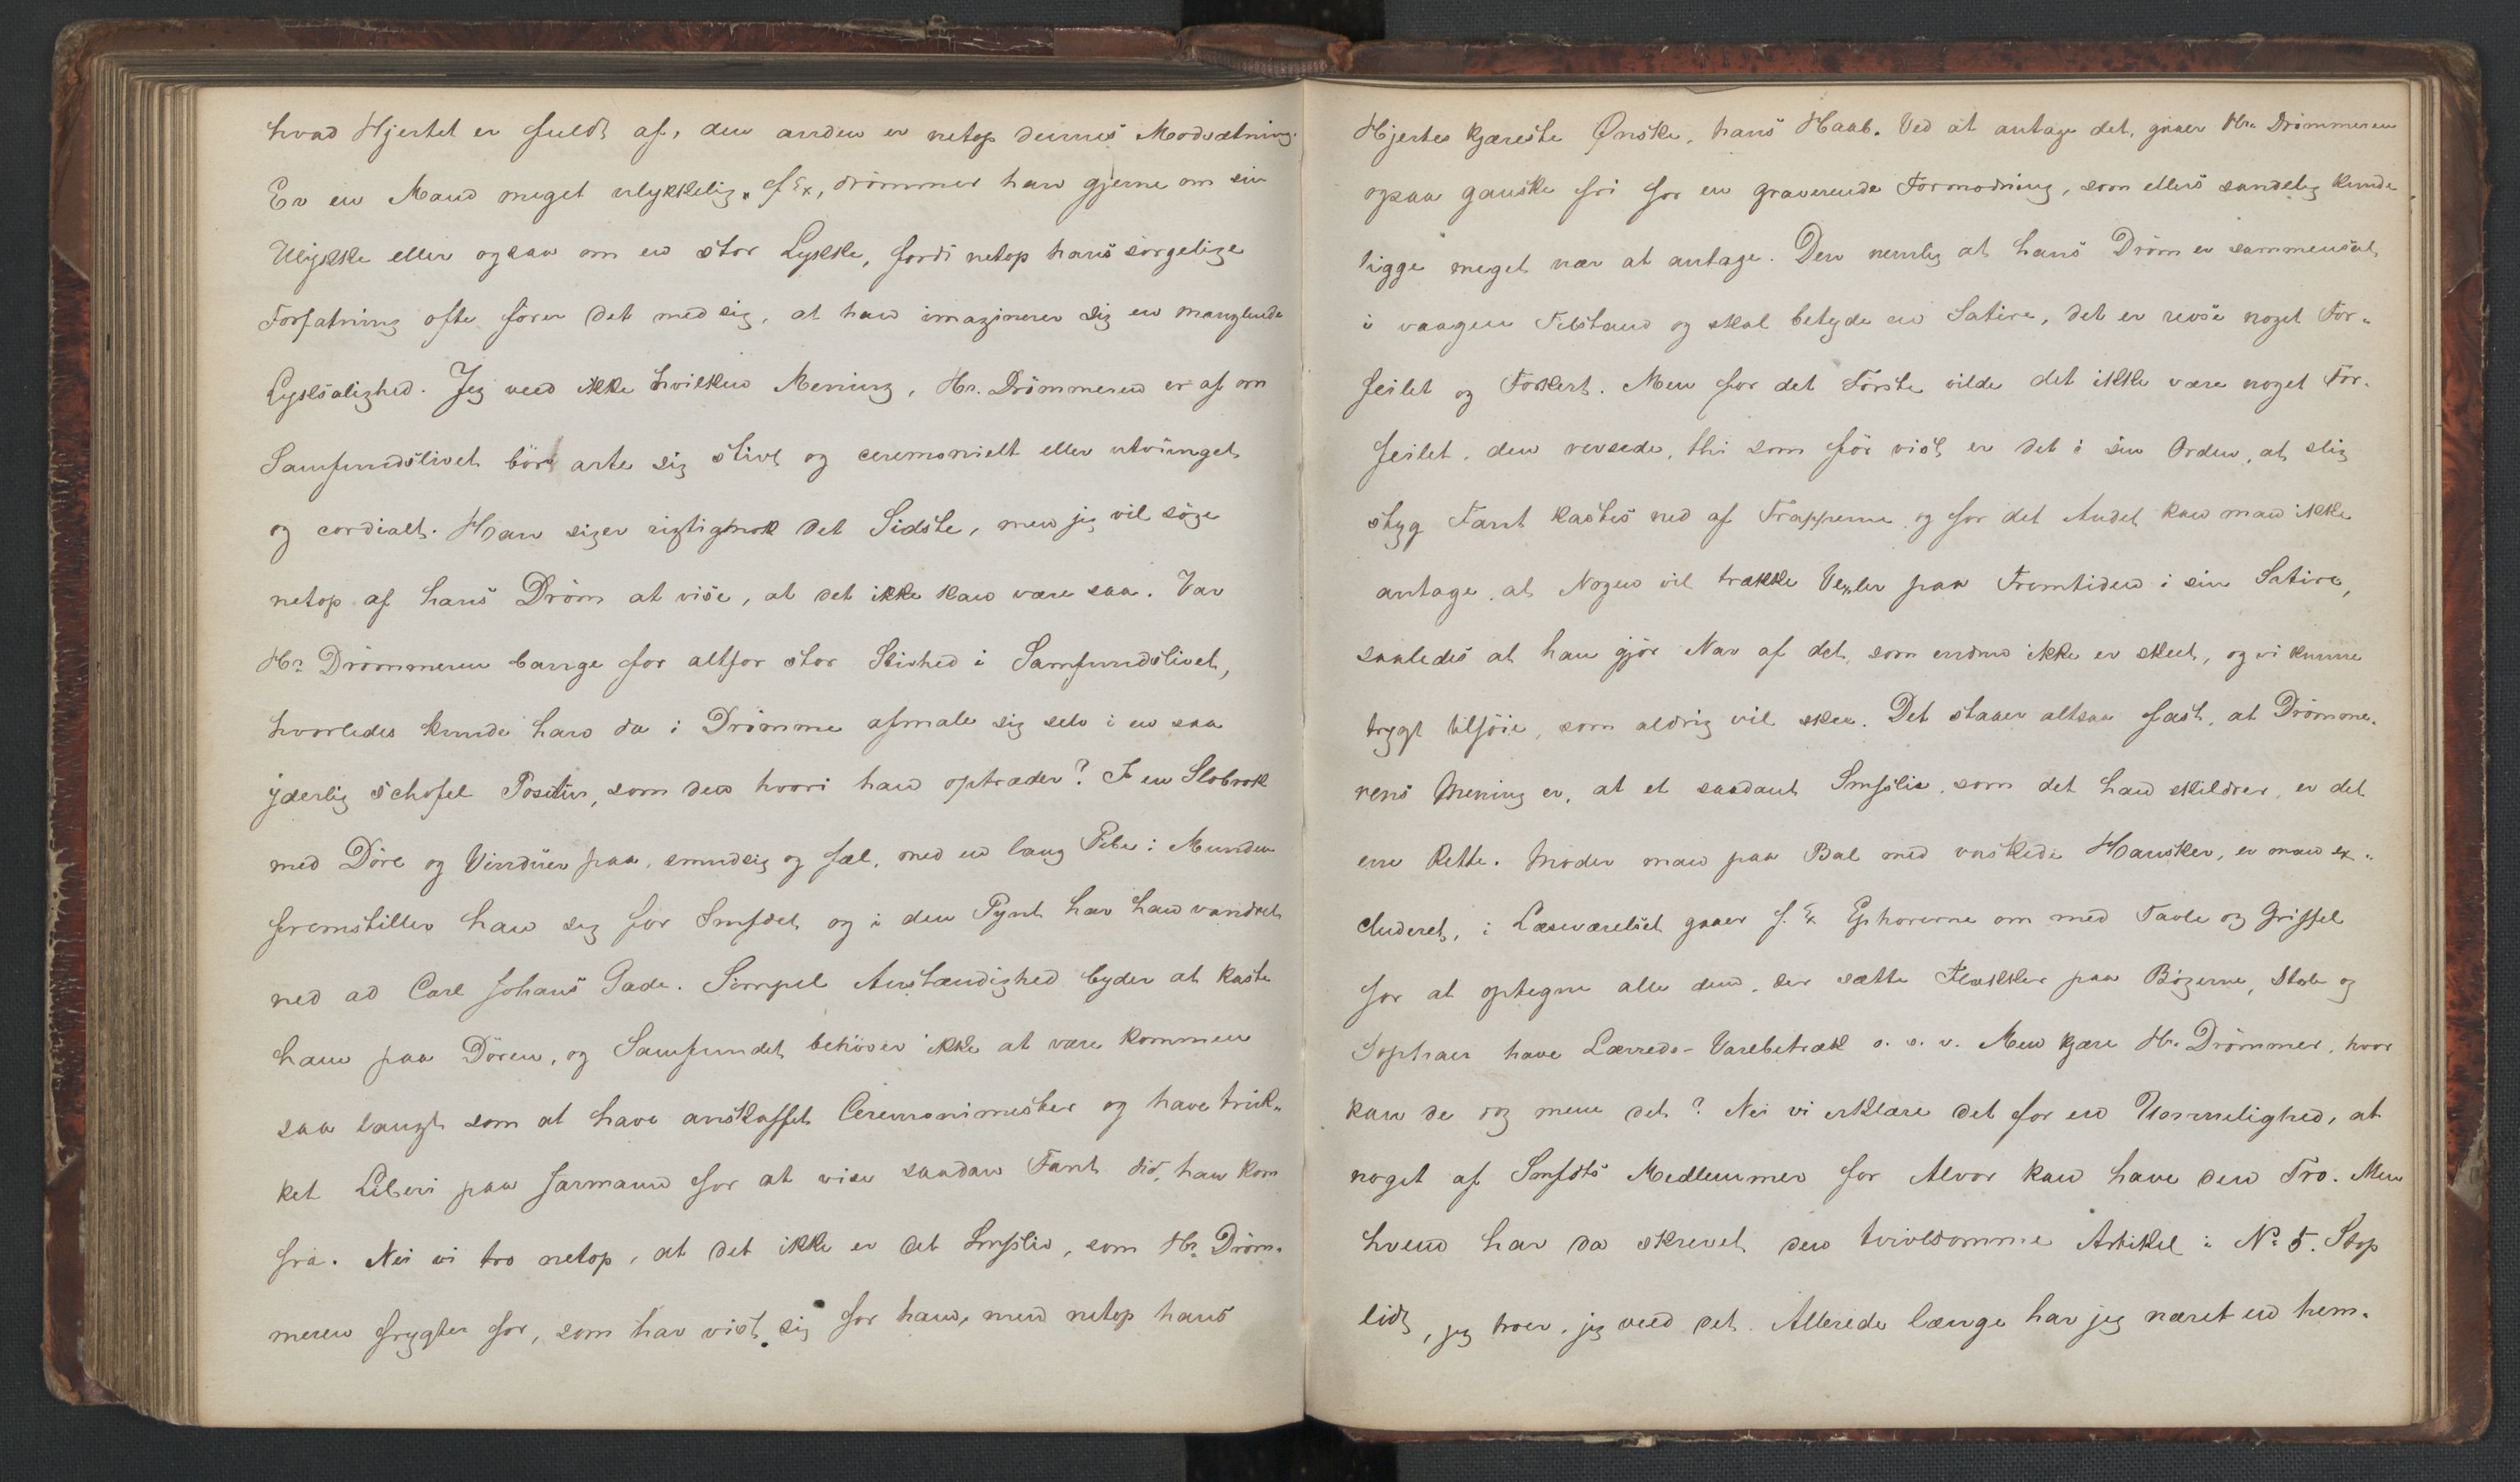 hvad Hjertet er fuldt af, den anden er netop dennes Modsætning.
Er en Mand meget ulykkelig f Ex, drømmer han gjerne om sin
Ulykke eller ogsaa om en stor Lykke, fordi netop hans sorgelige
Forfatning ofte fører det med sig, at han imaginerer sig en manglende
Lyksalighed. Jeg veed ikke hvilken Mening, Hr. Drømmeren er af om
Samfundslivet bør arte sig stivt og ceremonielt eller utvunget
og cordialt. Han siger rigtignok det Sidste, men jeg vil søge
netop af hans Drøm at vise, at det ikke kan være saa. Var
Hr. Drømmeren bange for altfor stor Stivhed i Samfundslivet,
hvorledes kunde han da i Drømme afmale sig selv i en saa
yderlig schofel Positur, som den hvori han optræder? I en Slobrok
med Døre og Vinduer paa, smudsig og fæl, med en lang Pibe i Munden
fremstiller han sig for Smfdet og i den Pynt har han vandret
ned ad Carl Johans Gade. Simpel Anstændighed byder at kaste
ham paa Døren, og Samfundet behøver ikke at være kommen
saa langt som at have anskaffet Ceremonimester og have truk-
ket Liberi paa Jarmann for at vise saadan Fant did, han kom
fra. Nei vi tro netop, at det ikke er det Smfsliv, som Hr. Drøm-
meren frygter for, som har vist sig for ham, men netop hans
Hjertes kjæreste Ønske, hans Haab. Ved at antage det, gaaer Hr. Drømmeren
ogsaa ganske fri for en graverende Formodning, som ellers sandelig kunde
ligge meget nær at antage. Den nemlig at hans Drøm er sammensat
i vaagen Tilstand og skal betyde en Satire, det er revse noget For-
feilet og Forkert. Men for det Første vilde det ikke være noget For-
feilet, den revsede, thi som før vist er det i sin Orden, at slig
styg Fant kastes ned af Trapperne og for det Andet kan man ikke
antage, at Nogen vil trække Vexler paa Fremtiden i sin Satire,
saaledes at han gjør Nar af det, som endnu ikke er skeet, og vi kunne
trygt tilføie, som aldrig vil skee. Det staaer altsaa fast, at Drømme-
rens Mening er, at et saadant Smfsliv, som det han skildrer, er det
ene Rette. Møder man paa Bal med vaskede Hansker, er man ex-
cluderet, i Læseværelset gaaer f. Ex Ephorerne om med Tavle og Griffel
for at optegne alle dem, der sætte Flækker paa Bøgerne, Stole og
Sophaer have Lærreds-Varebetræk o. s. v. Men kjære Hr. Drømmer, hvor
kan de dog mene det? Nei vi erklære det for en Umuelighed, at
noget af Smfdts Medlemmer for Alvor kan have den Tro. Men
hvem har da skrevet den tvivlsomme Artikel i No 5. Stop
lidt, jeg troer, jeg veed det. Allerede længe har jeg næret en hem-